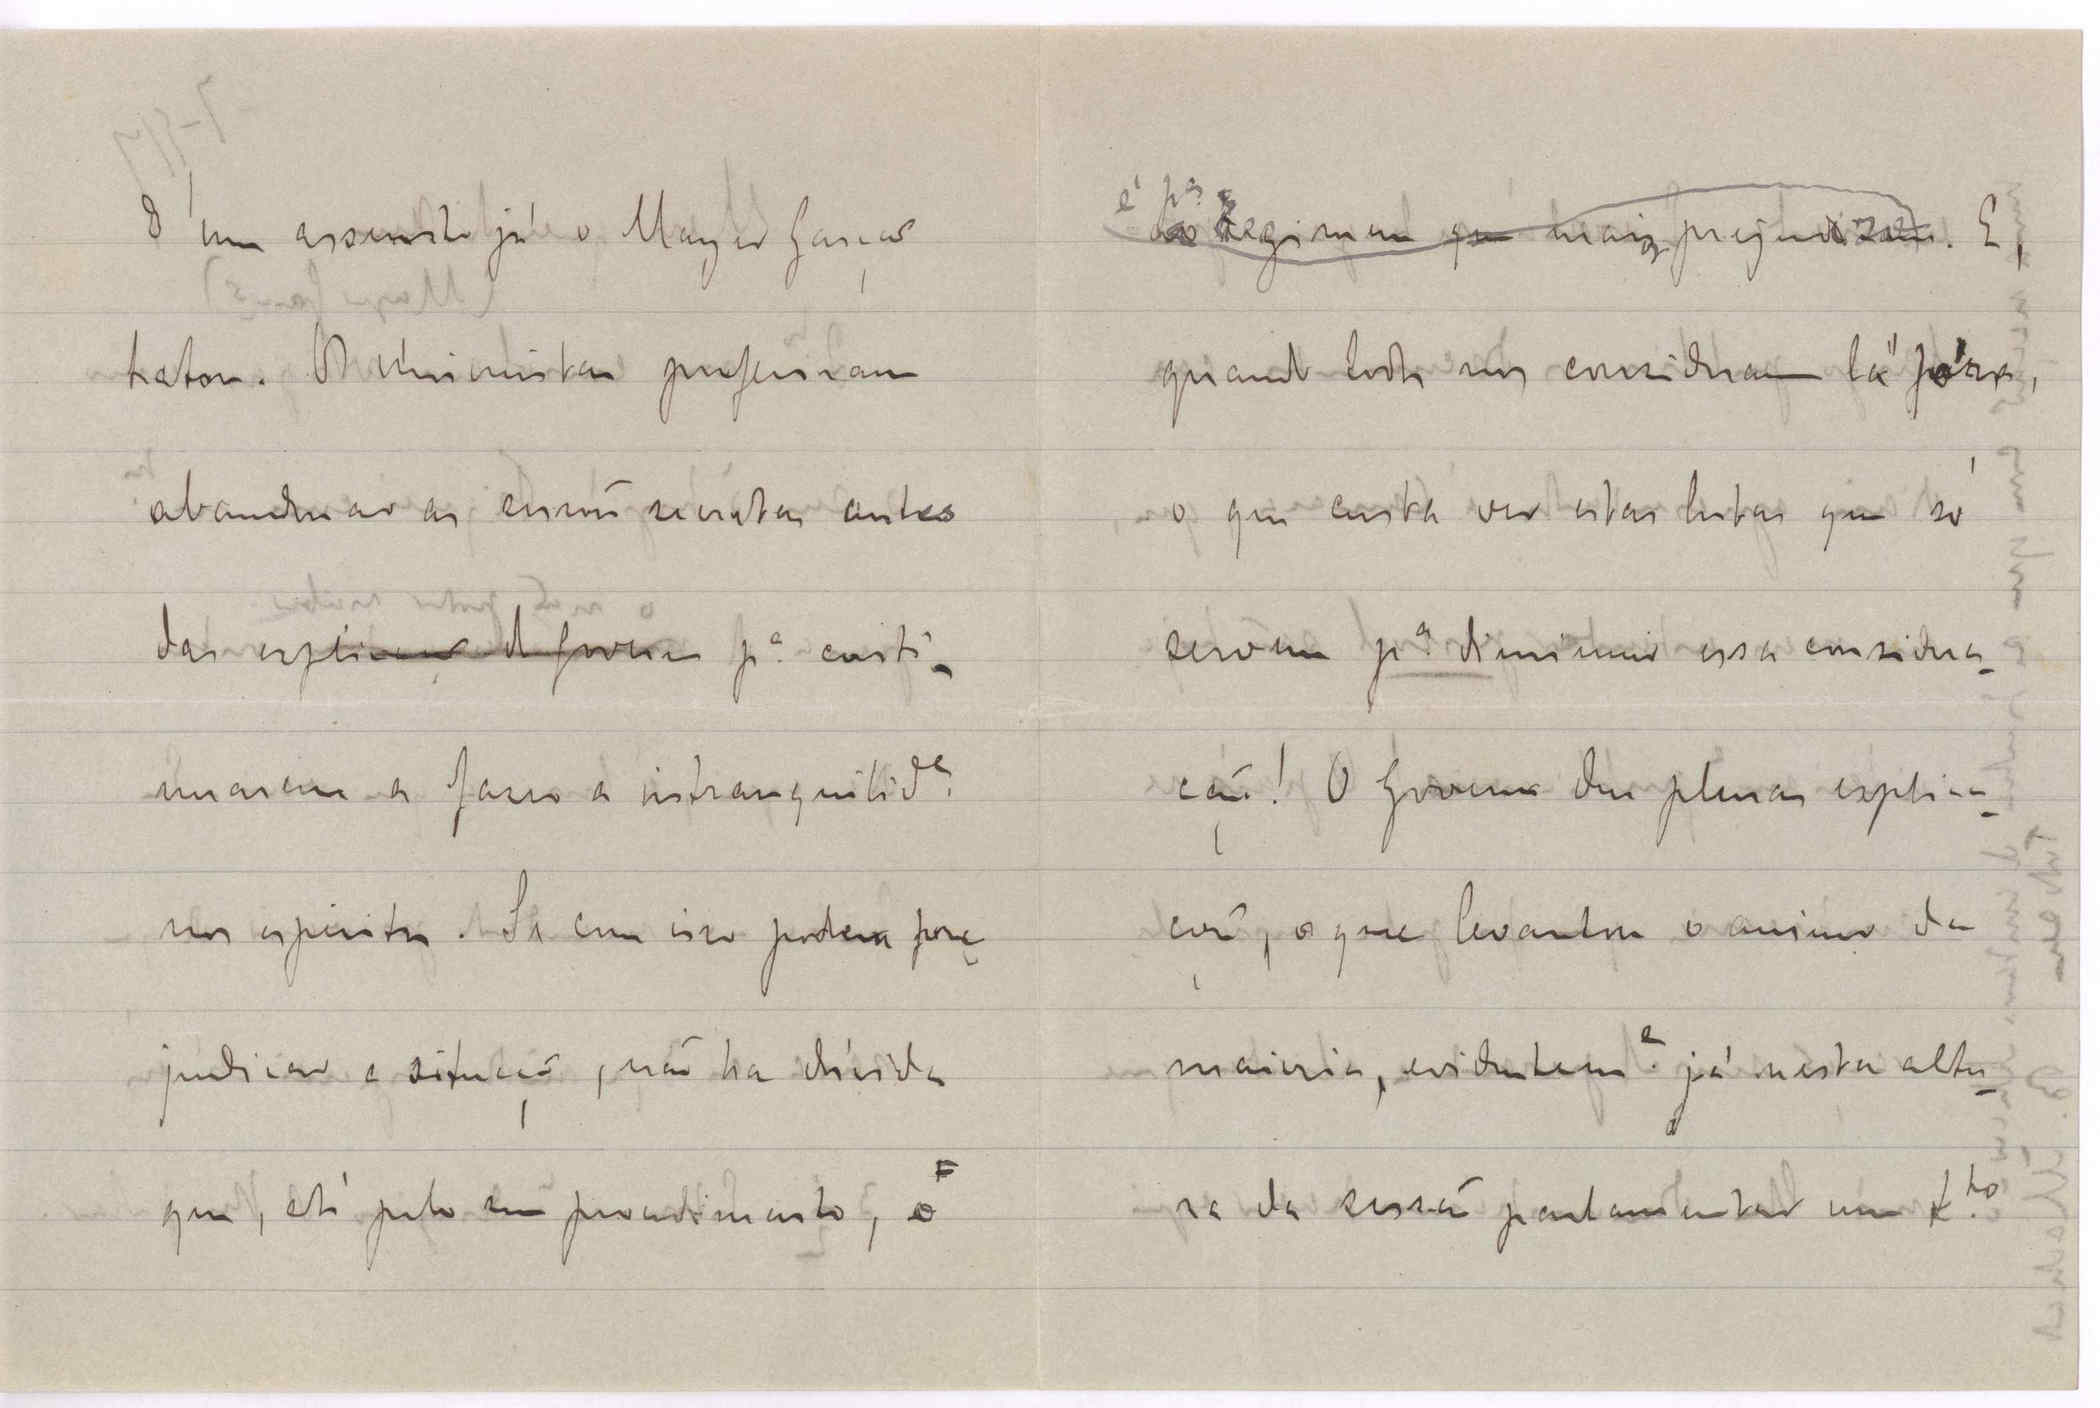 D'um assunto já o Mayer Garção
tratou. Os unionistas preferiram
abandonar as sessões secretas antes
das explicações do Governo pª conti-
nuarem a fazer a intranquilidᵉ
nos espiritos. Se com isso podem pre-
judicar a situação, não ha dúvida
que, até pelo seu procedimento, o
é pª
ao Regimen que mais prejudicam. E,
quando todos nos consideram lá fóra,
o que custa ver estas lutas que só
servem pª diminuir essa considera-
ção! O Governo deu plenas explica-
ções, o que levantou o animo da
maioria, evidentemᵉ já nesta altu-
ra da sessão parlamentar um tto